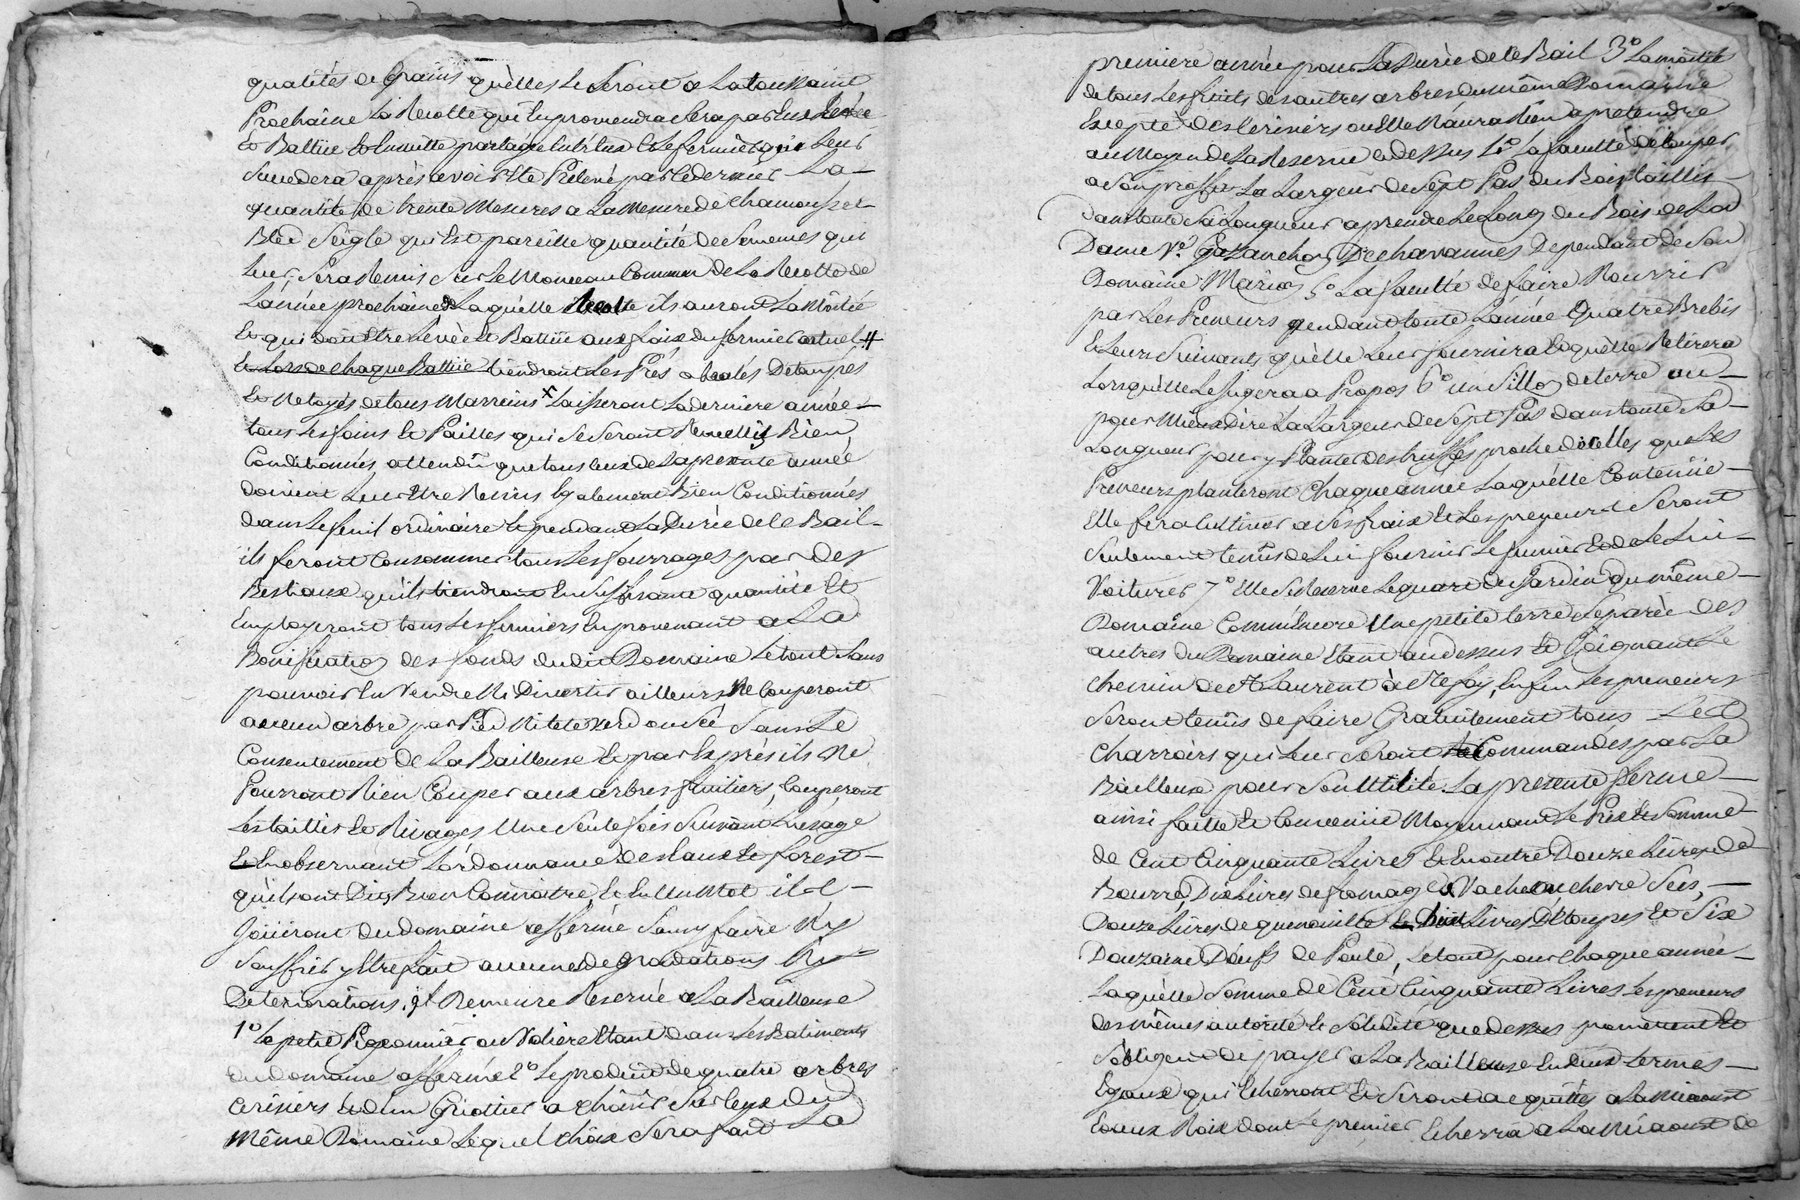 qualités de Grains qu'elles Le Seront a La toussaint
Prochaine La Récolte qui En proviendra Sera par Eux Levée
Et Battüe Et Ensuitte partagée Entr'Eux Et le fermier qui Leur
Succedera après avoir Eté Prélevé par Ce dernier La
quantité de trente Mesures a La Mesure de Chamousset
Bled Seigle qui Est pareille quantité de Semences qui
Leur Sera Remis Sur Le Monceau Commun de La Récolte de
L'année prochaine de Laquélle Récolte ils auront La Moitié
Et qui doit Etre Levée Et Battüe aux fraix du fermier actuel #
Et Lors de Chaque Battüe tiendront Les Prés Détaupés
Et Netoyés de tous Marreins x Laisseront La derniere année
tous Les foins Et Pailles qui Se Seront Recueillis Bien
Conditionnés, attendû que tous Ceux de La présente année
doivent Leur Etre Remis Egalement Bien Conditionnés
dans Le fenil ordinaire Et pendant La Durée de Ce Bail
ils feront Consommer tous Les fourrages par des
Bestiaux qu'ils tiendront En Suffisante quantité Et
Employeront tous Les fumiers En provenant a La
Bonification des fonds dudit Domaine Le tout Sans
pouvoir En Vendre Ni Divertir ailleurs Ne Couperont
aucun arbre par Pied Ni tete Verd ou Sec Sans Le
Consentement de La Bailleuse Et par Exprès ils Ne
Pourront Rien Couper aux arbres fruitiers, Couperont
Les taillis Et Rivages Une Seule fois Suivant L'usage
Et En observant L'ordonnance des Eaux Et forest
qu'ils ont Dit Bien Connoitre, Et En Un Mot ils
Joüiront du domaine affermé Sans y faire Ny
Souffrir y Etre fait aucunes dégradations Ny
Deteriorations. Et Demeure Reservé a La Bailleuse
1° Le petit Pigeonnier ou Voliere Etant dans Les Batiments
du domaine affermé 2° Le produit de quatre arbres
Cerisiers Et d'un Griottier a Choisir Sur Ceux du
même Domaine Lequel Choix Sera fait La
premiere année pour La Durée de Ce Bail 3° La moitié
de tous Les fruits des autres arbres du même Domaine
Excepté des Cerisiers ou Elle N'aura Rien a pretendre
au Moyen de La Reserve Cy dessus 4° La faculté de Couper
a Son proffit La Largeur de Sept Pas du Bois taillis
dans toute Sa Longueur a prendre Le Long du Bois de La
Dame Ve. Galanchon Dechavannes Dependant de Son
Domaine Marion 5° La faculté de faire Nourrir
par Les Preneurs pendant toute L'année Quatre Brebis
Et Leurs Suivants, qu'elle Leur fournira Et qu'elle Retirera
Lorsqu'elle Le Jugera a Propos 6° Un Sillon de terre ou
pour Mieux Dire La Largeur de Sept Pas dans toute Sa
Longueur pour y Planter des truffes proche de Celles que Les
Preneurs planteront Chaque année Laquelle Contenüe
Elle fera Cultiver a Ses fraix Et Les preneurs Seront
Seulement tenûs de Lui fournir Le fumier Et de Le Lui
Voiturer 7° Elle Se Reserve Le quart du Jardin du même
Domaine Comm'Encore Une petite terre Separée des
autres du Domaine Etant au dessus Et Joignant Le
Chemin de St Laurent à Ste foy, Enfin Les preneurs
Seront tenûs de faire Gratuitement tous Les
Charrois qui Leur Seront Commandés par La
Bailleuse pour Son Utilité. La presente ferme
ainsi faitte Et Convenüe Moyennant Le Prix Et Somme
de Cent Cinquante Livres Et En outre Douze Livres de
Beurre, Dix Livres de fromage de Vache ou Chevre Secs,
Douze Livres de quenouille Et Huit Livres D'Etoupes Et Six
Douzaine D'œufs de Poule, Le tout pour Chaque année
Laquelle Somme de Cent Cinquante Livres Les preneurs
des mêmes autorité Et Solidité que dessus promettent Et
S'obligent de payer a La Bailleuse En deux termes
Egaux qui Echerront Et Seront acquittés a La Miaoust
Et aux Rois dont Le premier Echerra a La Miaoust de